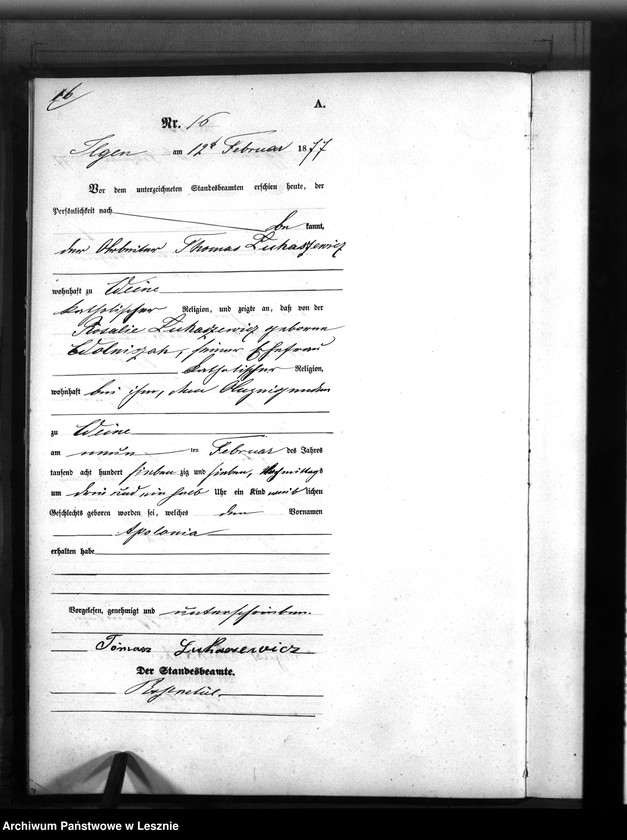 16
A.
Nr. 16
Ilgen am 12t Februar 1877
Vor dem unterzeichneten Standesbeamten erschien heute, der
Persönlichkeit nach
be kannt,
der Arbeiter Thomas Lukaszewicz
wohnhaft zu Weine
katholischer Religion, und zeigte an, daß von der
Rosalie Lukaszewicz geborene
Wolniczak, seiner Ehefrau
katholischer Religion,
wohnhaft bei ihm, dem Anzeigenden
zu Weine
am neun ten Februar des Jahres
tausend acht hundert sieben zig und sieben, Nachmittags
um drei und ein halb Uhr ein Kind weib lichen
Geschlechts geboren worden sei, welches den Vornamen
Apolonia
erhalten habe
Vorgelesen, genehmigt und unterschrieben.
Tomasz Lukaszewicz
Der Standesbeamte.
Archiwum Państwowe w Lesznie